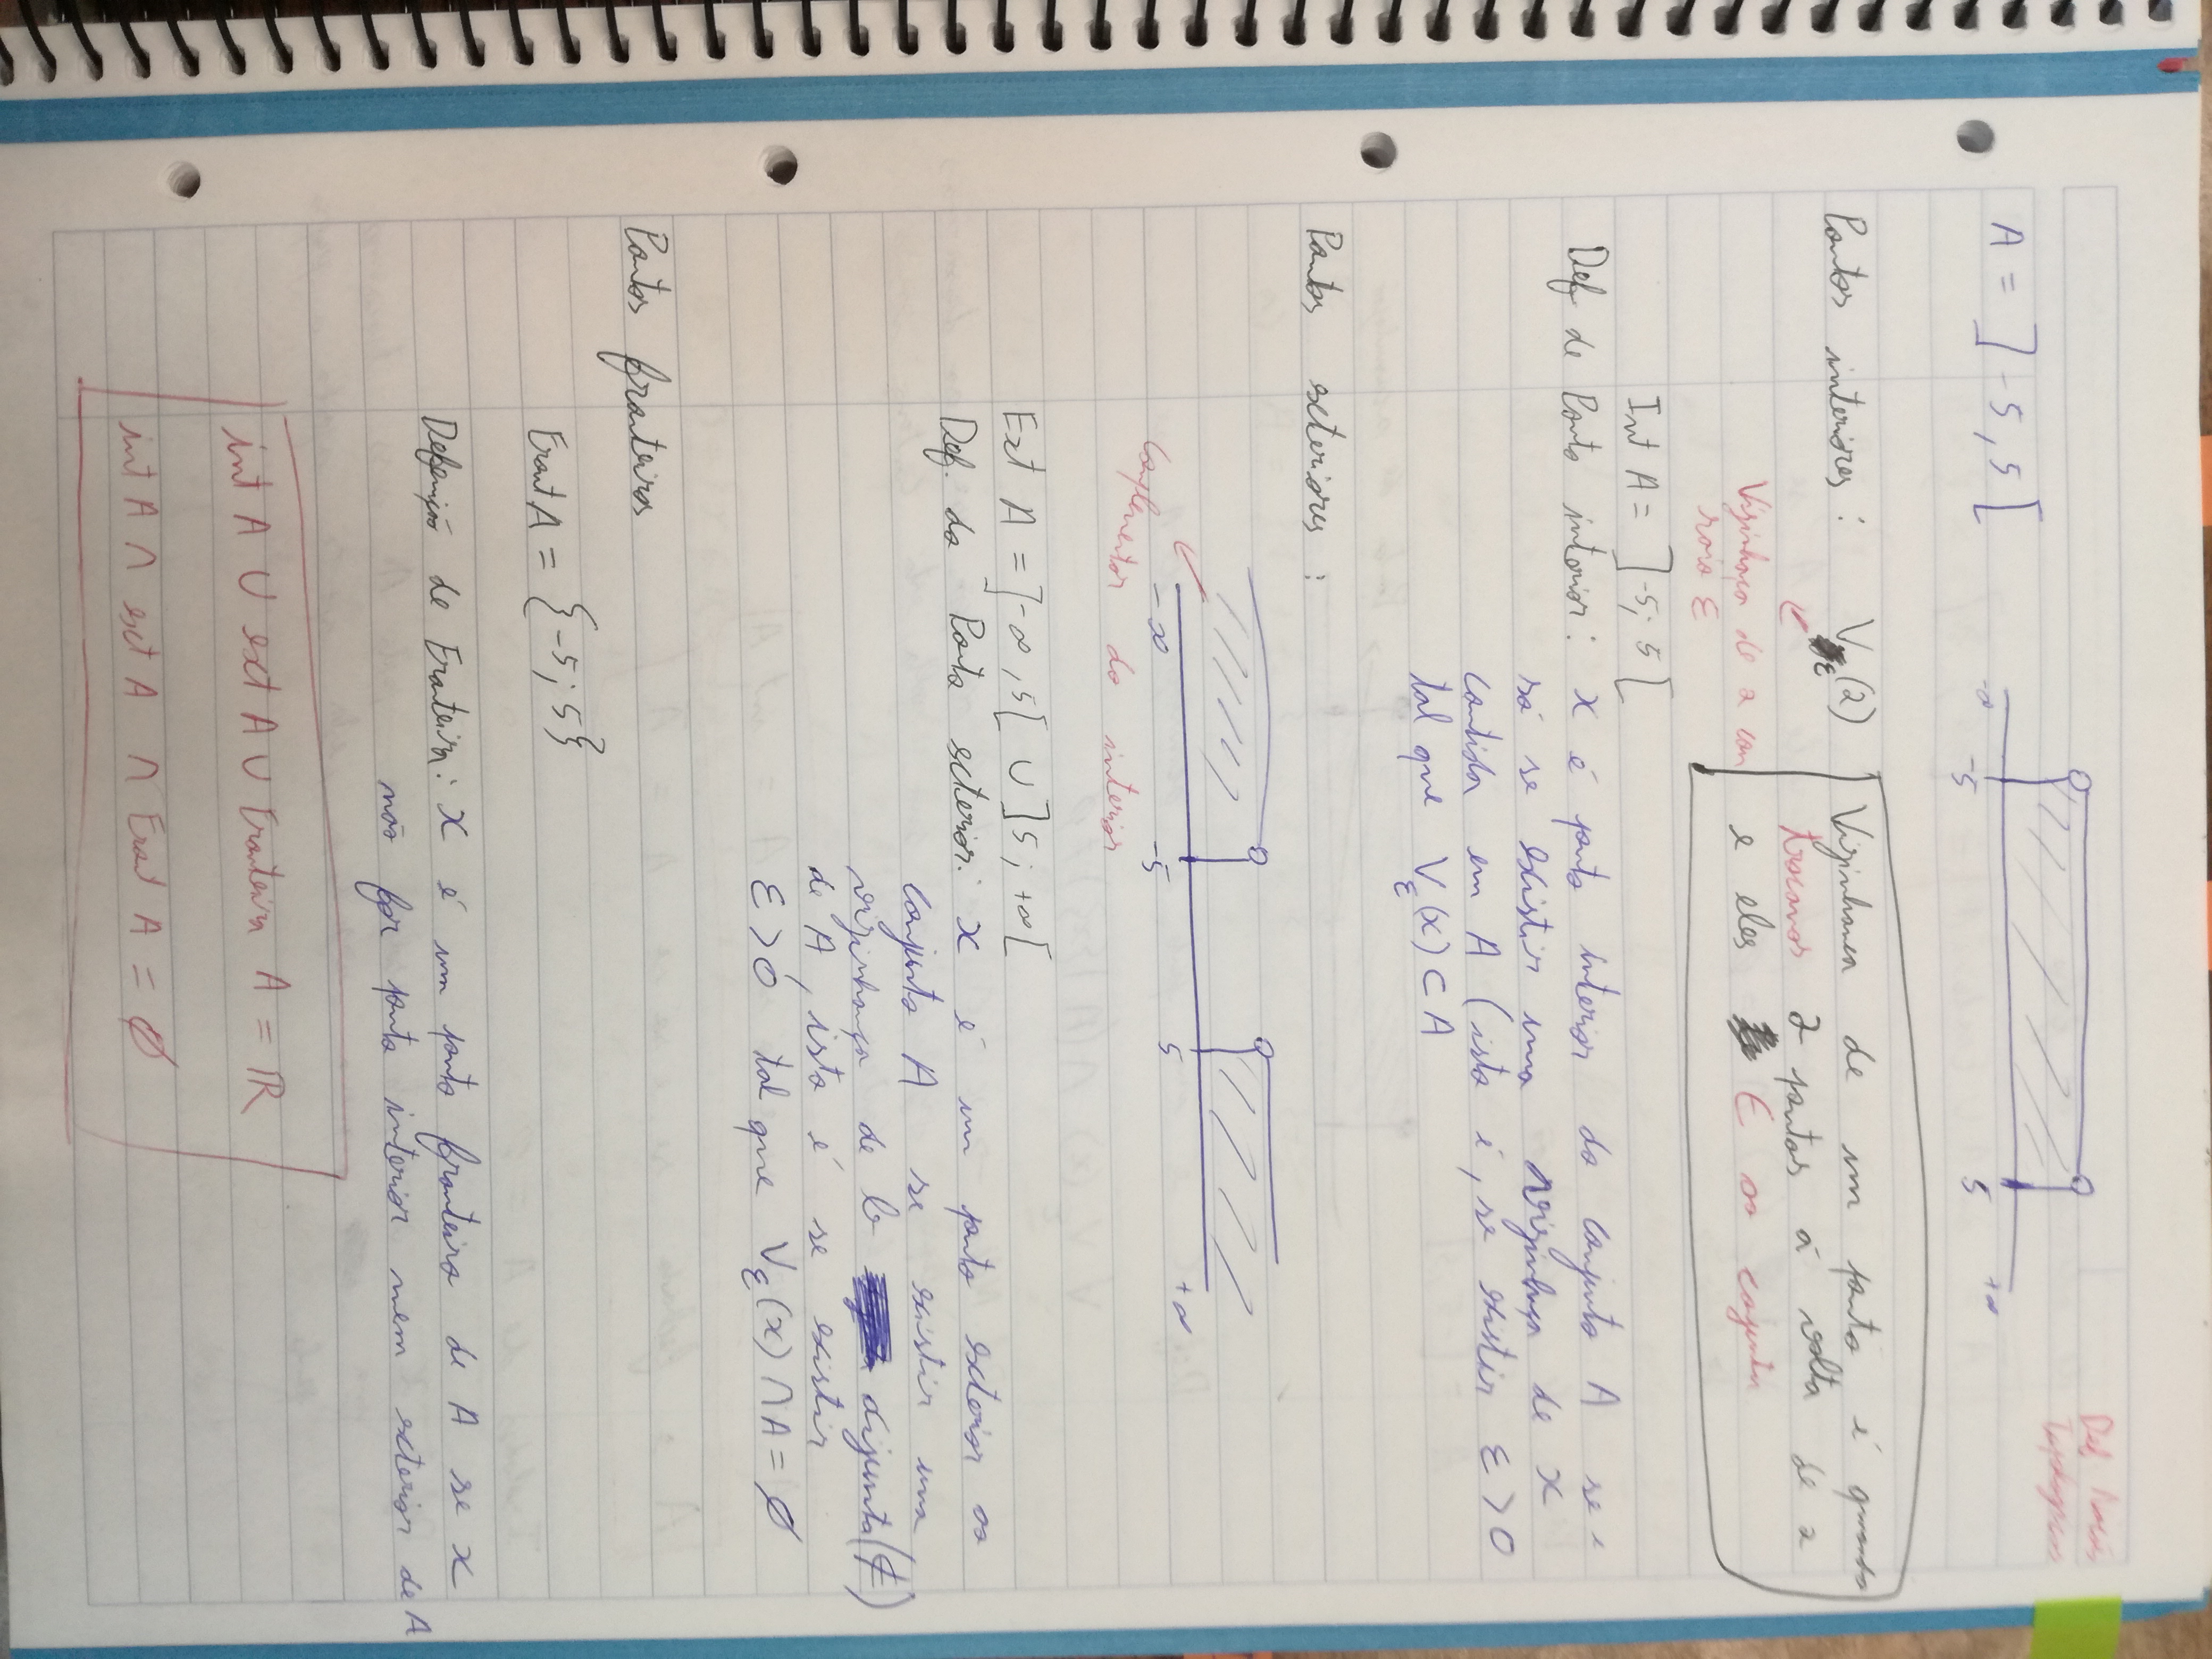 Def. Noções
Topológicas
A = ]-5,5[
-∞ -5 5 +∞
Pontos interiores : Vε(2)
Vizinhança de um ponto é quando
trocamos 2 pontos á volta de 2
e eles ∈ ao conjunto
Vizinhança de 2 com
raio ε
Int A = ]-5; 5[
Def de Ponto interior: x é ponto interior do conjunto A se e
só se existir uma vizinhança de x
contida em A (isto é, se existir ε>0
tal que Vε(x) ⊂ A
Pontos exteriores :
-∞ -5 5 +∞
Complementar do interior
Ext A = ]-∞,5[ ∪ ]5; +∞[
Def. do Ponto exterior: x é um ponto exterior ao
conjunto A se existir uma
vizinhança de b dijunta (∉)
de A, isto é se existir
ε>0 tal que Vε(x) ∩ A = ∅
Pontos fronteiros
Front A = {-5; 5}
Defenição de Fronteira: x é um ponto fronteiro de A se x
não for ponto interior nem exterior de A
int A ∪ ext A ∪ Fronteira A = ℝ
int A ∩ ext A ∩ Front A = ∅